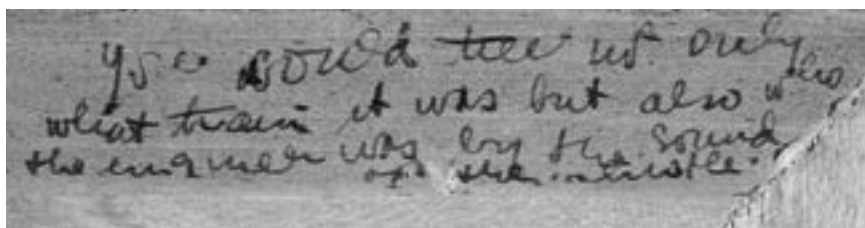 you could tell not only
what train it was but also who
the engineer was by the sound
of the whistle.